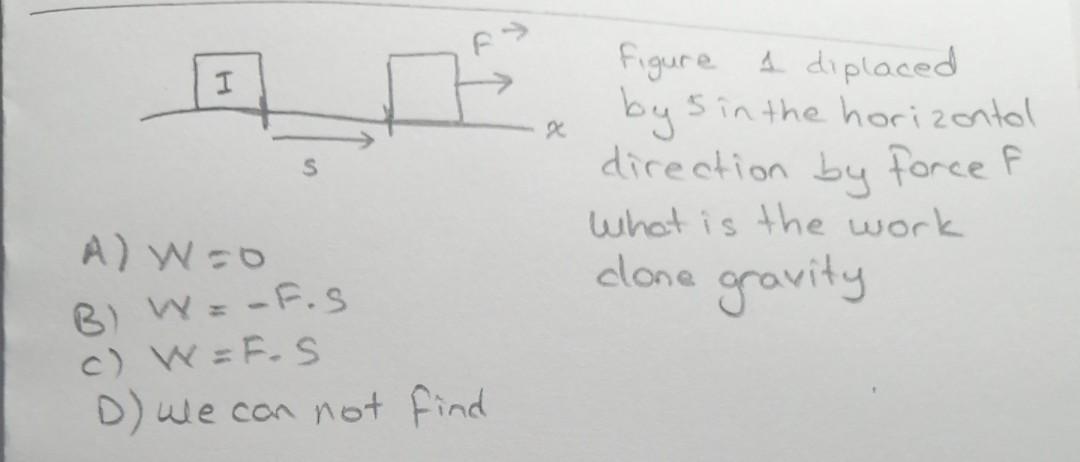 I
F
S
x
Figure 1 diplaced
by S in the horizontol
direction by force F
what is the work
done gravity
A) W = 0
B) W = -F.S
C) W = F.S
D) we can not find